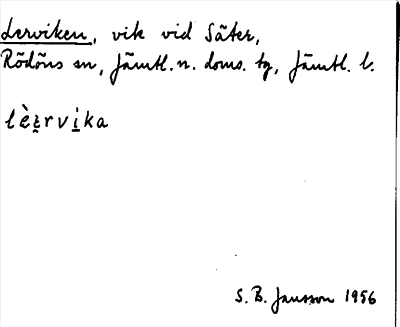 Lerviken, vik vid Säter,
Rödöns sn, Jämtl. n. doms. tg, Jämtl. l.
S. B. Jansson 1956